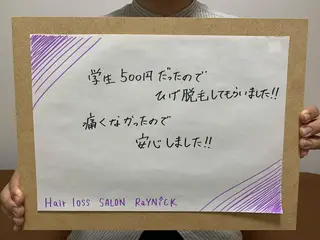 学生500円だったので
ひげ脱毛してもらいました!!
痛くなかったので
安心しました!!
Hair loss SALON RAYNICK